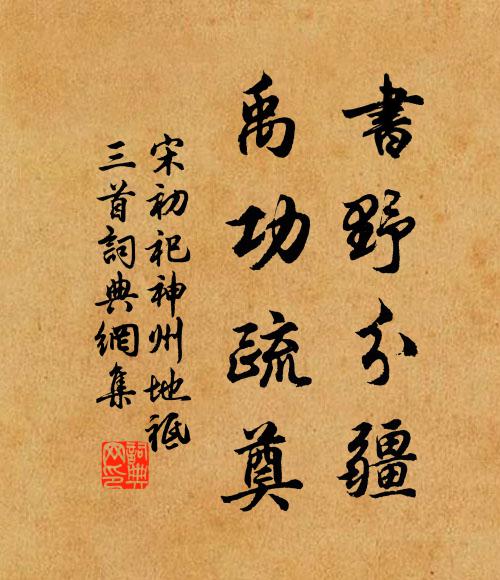 書野分疆
禹功疏奠
宋初祀神州地祇
三首詞典網集
詞典